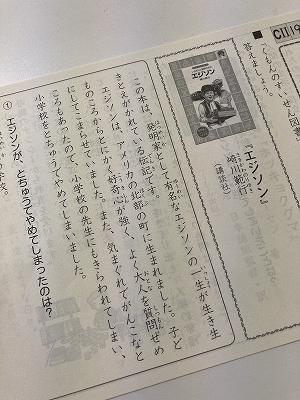 CⅡ19
■ くもんのすいせん図書
答えましょう。
エジソン
『エジソン』
崎川範行
(講談社)
この本は、発明家として有名なエジソンの一生が生き生
きとえがかれている伝記です。
エジソンは、アメリカの北部の町に生まれました。子ど
ものころからとにかく好奇心が強く、よく大人を質問ぜめ
にしてこまらせていました。また、気まぐれでがんこなと
ころもあったので、小学校の先生にもきらわれてしまい、
小学校をとちゅうでやめてしまいました。
① エジソンが、とちゅうでやめてしまったのは?
小学校。